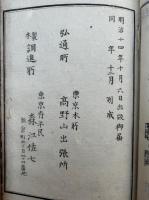 明治十四年十月六日出版御届
同年十二月刻成
弘通所
東京本所
高野山出張所
製本調進所
東京府平民
森江佐七